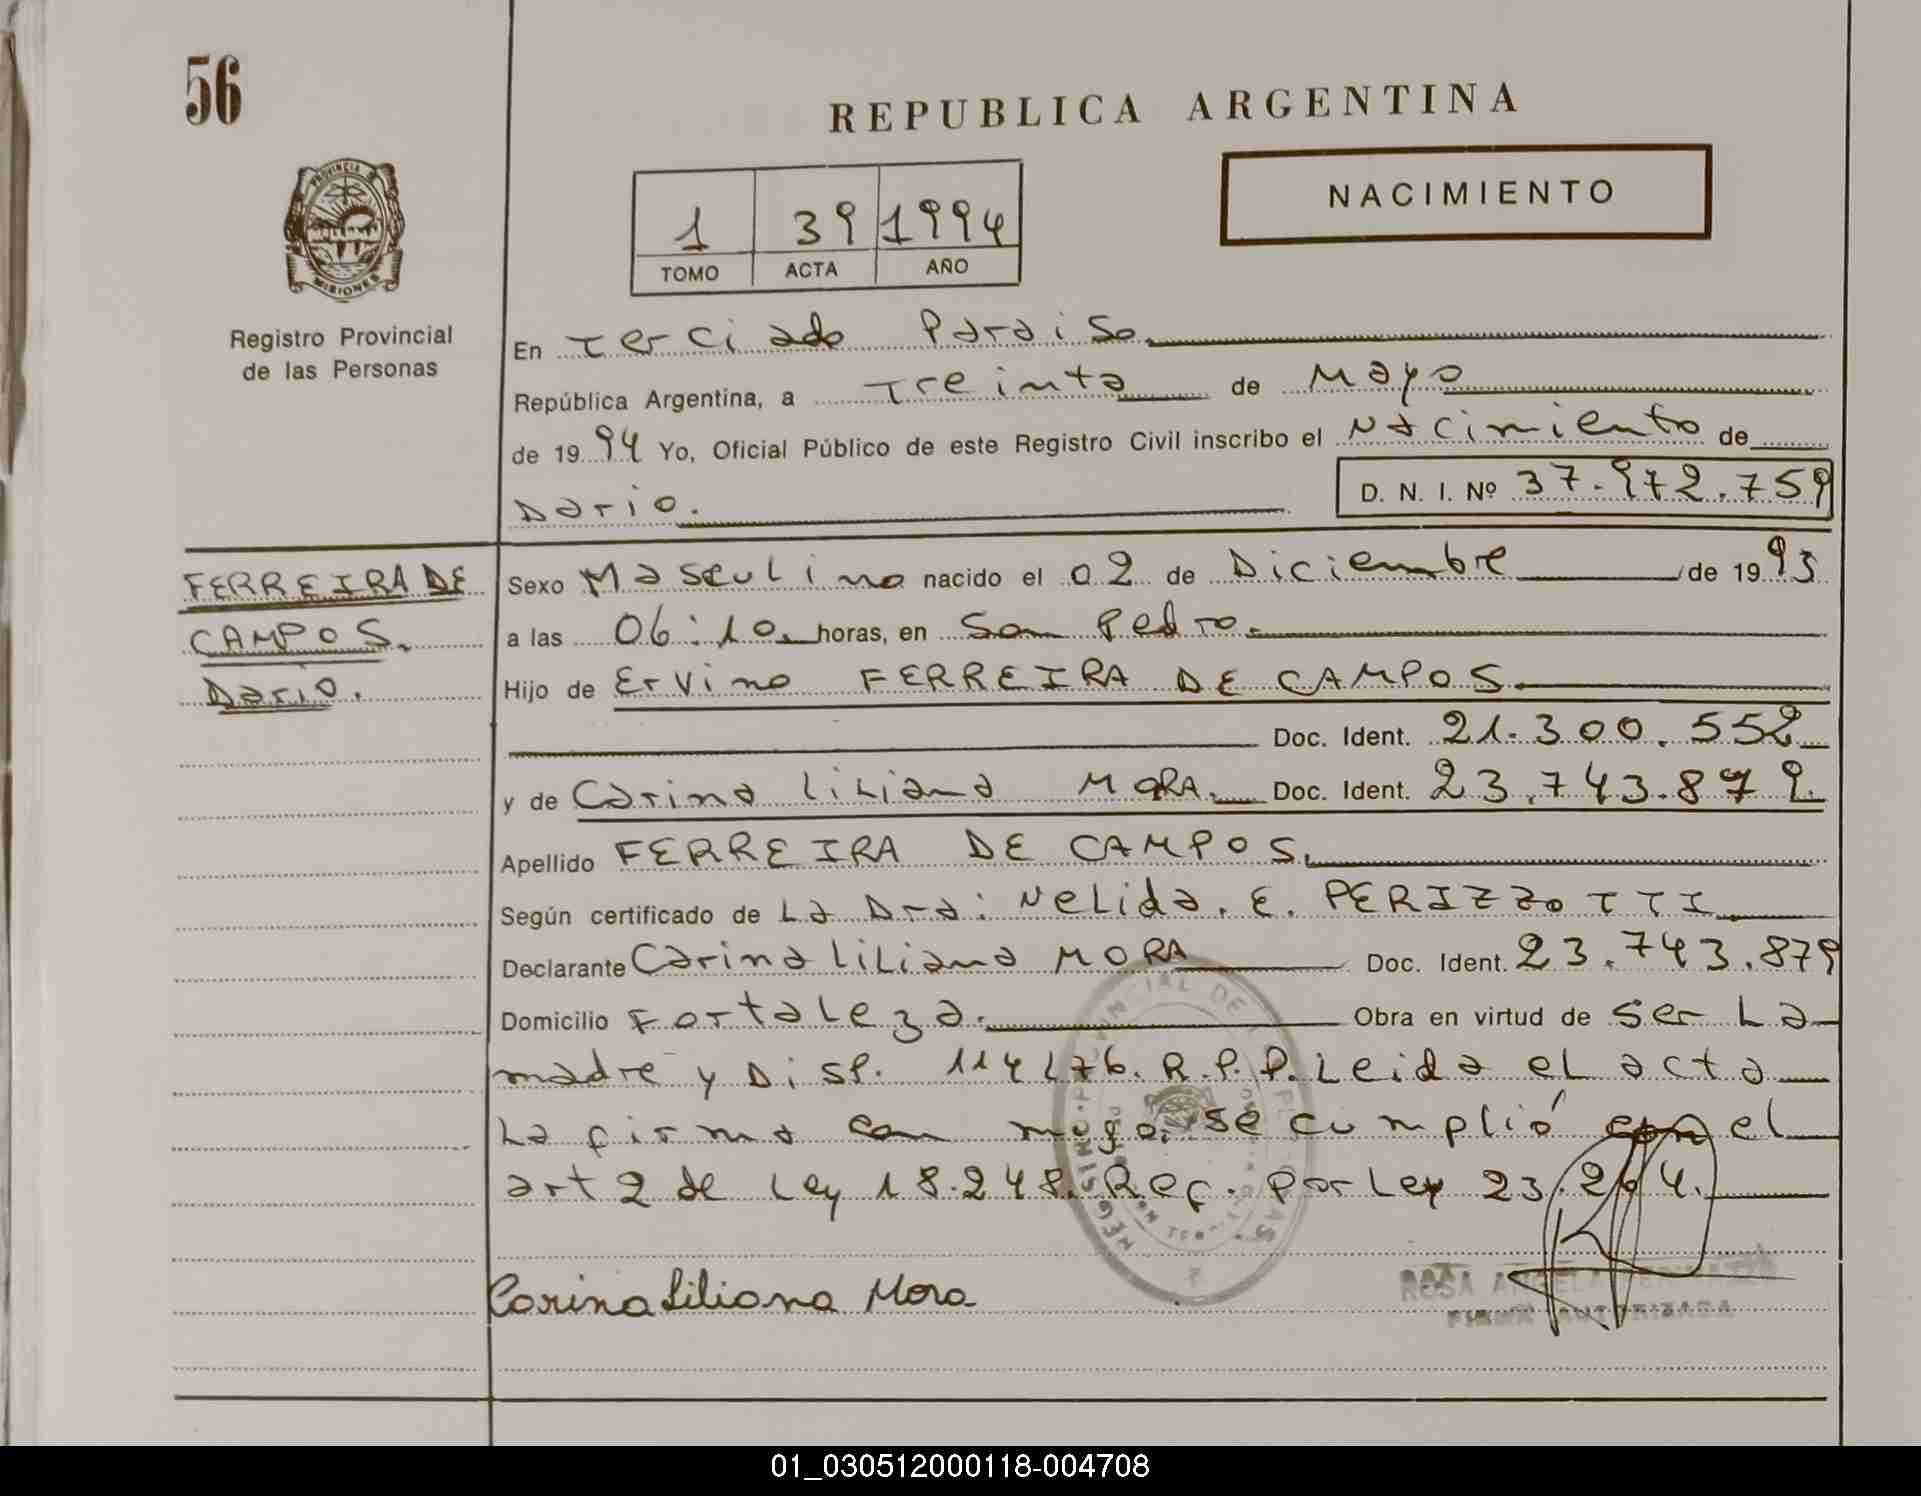 56
REPUBLICA ARGENTINA
PROVINCIA DE
MISIONES
NACIMIENTO
1 39 1994
TOMO ACTA AÑO
Registro Provincial
de las Personas
En Terciado Paraiso.
República Argentina, a Treinta de Mayo
de 1994 Yo, Oficial Público de este Registro Civil inscribo el Nacimiento de
Dario. D. N. I. Nº 37.972.759
FERREIRA DE
CAMPOS.
Dario.
Sexo Masculino nacido el 02 de Diciembre de 1993
a las 06:10. horas, en San Pedro.
Hijo de Ervino FERREIRA DE CAMPOS.
Doc. Ident. 21.300.552
y de Carina Liliana MORA. Doc. Ident. 23.743.879.
Apellido FERREIRA DE CAMPOS.
Según certificado de La Dra: Nelida. E. PERIZZOTTI
Declarante Carina Liliana MORA Doc. Ident. 23.743.879
Domicilio Fortaleza. Obra en virtud de ser La
madre y Disp. 114/76. R.P.P. Leida el acta
La firma con migo. se cumplió con el
art 2 de Ley 18.248. Ref. por Ley 23.264.
Carina Liliana Mora
ROSA ANGELA
FIRMA AUTORIZADA
01_030512000118-004708